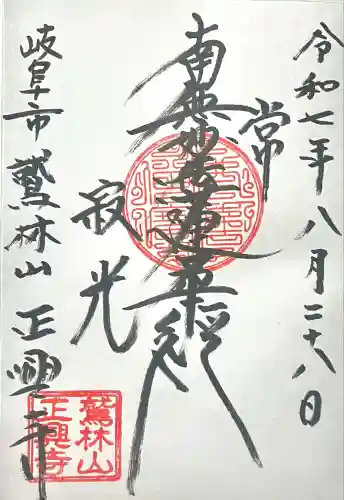 令和七年八月二十八日
常
南無妙法蓮華経
寂光
岐阜市鷲林山正興寺
鷲林山
正興寺